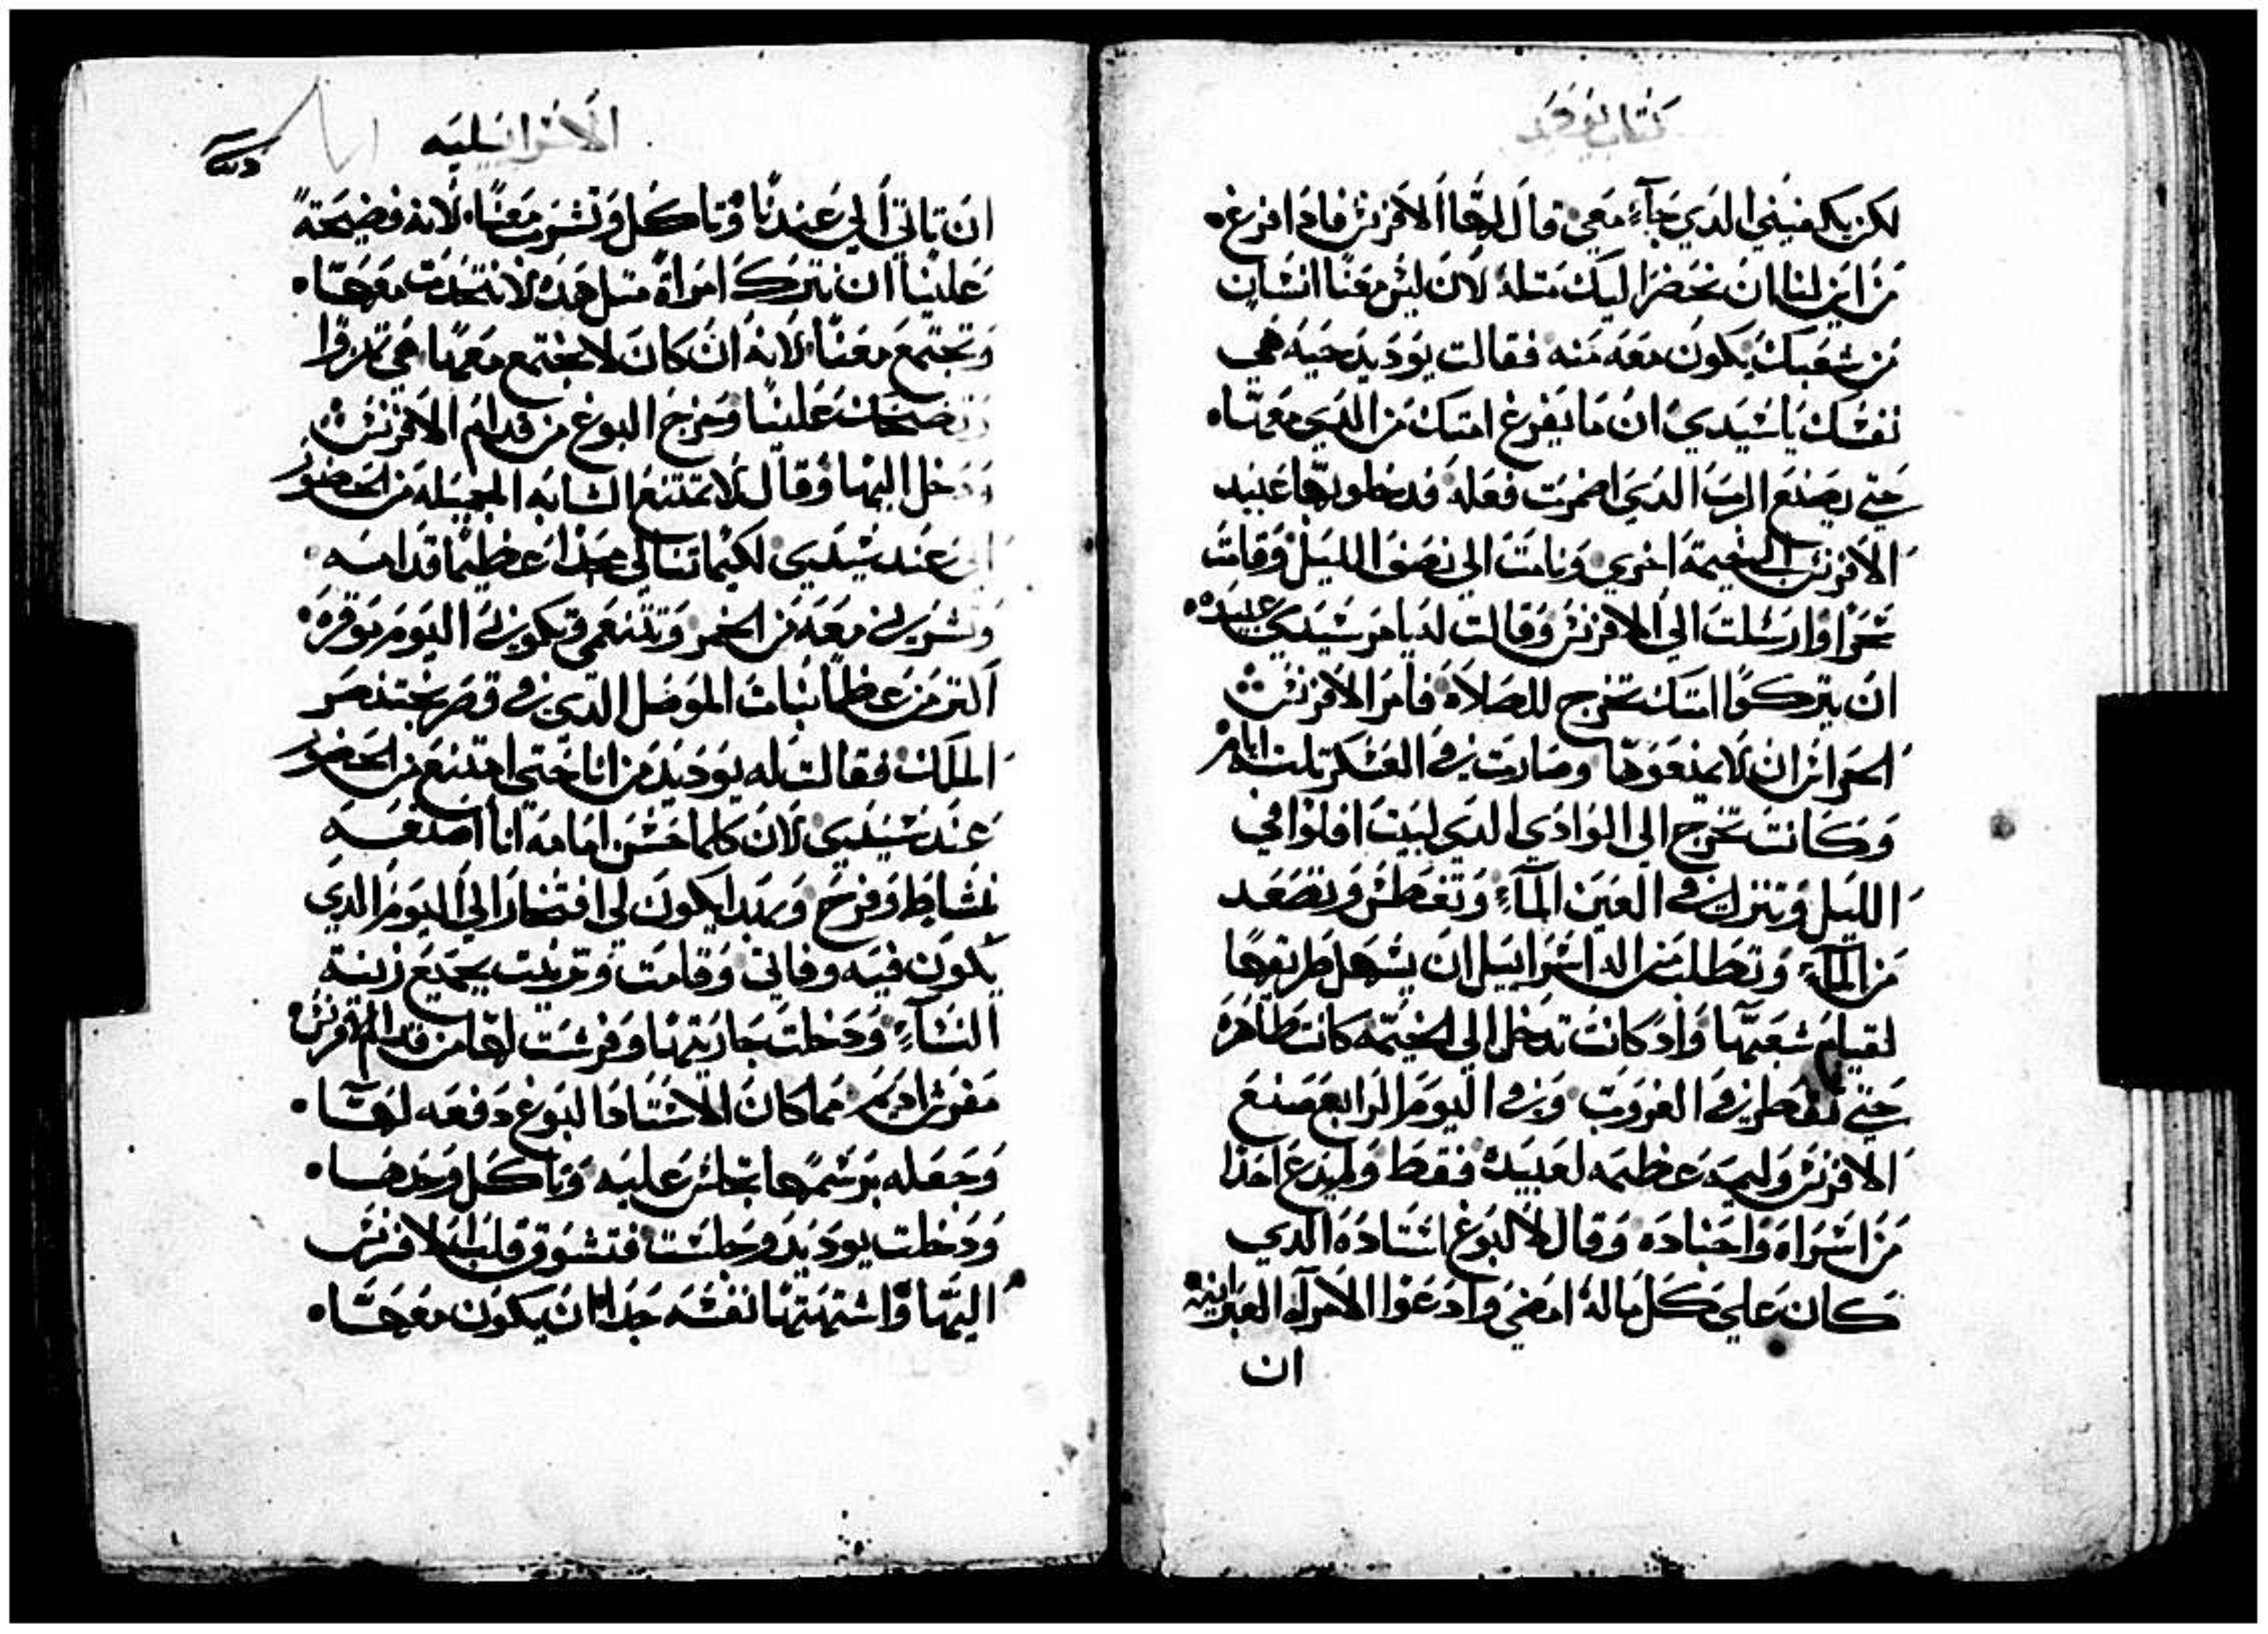 كتاب يوديد
لكن يكفيني الدي جآء معي قال لها الافرنس فادا فرغ
من اين لنا ان نحضر اليك متله لان ليس معنا انسان
من شعبك يكون معه منه فقالت يوديد حيه هي
نفسك يا سيدي ان ما يفرغ امتك من الدي معها
حتي يصنع الرب الدي اضمرت فعله فدخلوا بها عبيد
الافرنس الي خيمة اخري ونامت الي نصف الليل وقامت
سحرا وارسلت الي الافرنس وقالت له يامر سيدي عبيده
ان يتركوا امتك تخرج للصلاه فامر الافرنس
الحراس ان لا يمنعوها وصارت في العسكر تلت ايام
وكانت تخرج الي الوادي الدي لبيت افلوا في
الليل وتنزل في العين المآء وتغطس وتصعد
من المآء وتطلب من اله اسراييل ان يسهل طريقها
لقيام شعبها واد كانت تدخل الي الخيمه كانت طاهره
حتي تفطر في الغروب وفي اليوم الرابع صنع
الافرنس وليمه عظيمه لعبيده فقط ولم يدع احدا
من اسراه واجناده وقال لالبوغ استاده الدي
كان علي كل ماله امضي وادعوا الامرآه العبرانيه
ان
الاسرايليه
ان تاتي الي عندنا وتاكل وتشرب معنا لانه فضيحة
علينا ان نترك امراة متل هده لا نتحدت معها
وتجتمع معنا لانه ان كان لا نجتمع معها هي تدروا
وتضحك علينا وخرج البوغ من قدام الافرنس
ودخل اليها وقال لا تمتنع الشابه الجميله من الحضور
الي عند سيدي لكيما تنالي مجدا عظيما قدامه
وتشربي معه من الخمر وتتنعمي وتكوني اليوم موقره
اكتر من عظما بنات الموصل الدي في قصر بختنصر
الملك فقالت له يوديد من انا حتي امتنع من الحضور
عند سيدي لان كلما حسن امامه انا اصنعه
بنشاط وفرح وهدا يكون لي افتخارا الي اليوم الدي
يكون فيه وفاتي وقامت وتزينت بجميع زينة
النسآء ودخلت جاريتها وفرشت لها من قدام الافرنس
مفرش اديم مما كان الاستاد البوغ دفعه لها
وجعله برسمها تجلس عليه وتاكل وحدها
ودخلت يوديد وجلست فتشوق قلب الافرنس
اليها واشتهتها نفسه جدا ان يكون معها